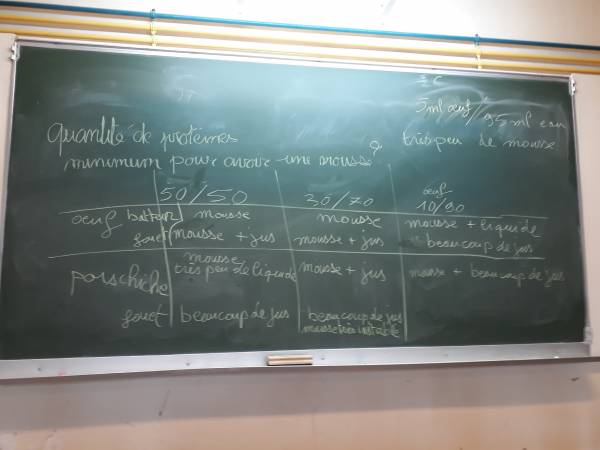 5ml œuf/95ml eau
très peu de mousse
Quantité de protéines
minimum pour avoir une mousse ?
50/50 30/70 œuf 10/90
œuf batteur mousse mousse mousse + liquide
fouet mousse + jus mousse + jus beaucoup de jus
poischiche mousse très peu de liquide mousse + jus mousse + beaucoup de jus
fouet beaucoup de jus beaucoup de jus
mousse très instable